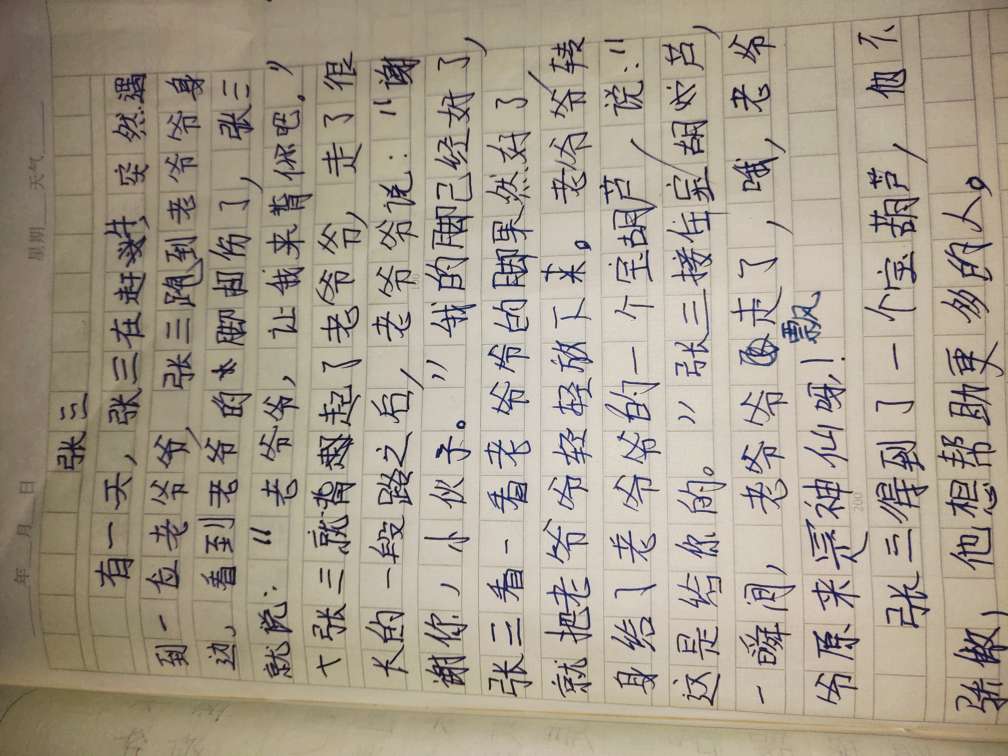 年 月 日 星期 天气
张三
有一天，张三在赶路，突然遇
到一位老爷爷，张三跑到老爷爷身
边，看到老爷爷的脚扭伤了，张三
就说：“老爷爷，让我来背你吧。”
张三就背起了老爷爷，走了很
长的一段路之后，老爷爷说：“谢
谢你，小伙子。”我的脚已经好了，
张三看一看老爷爷的脚果然好了
就把老爷爷轻轻放下来。老爷爷转
身给了老爷爷的一个宝葫芦，说：“
这是给你的。”张三接住宝葫芦，
一瞬间，老爷爷飘走了，哦，老爷
爷原来是神仙呀！
200
张三得到了一个宝葫芦，他不
张做，他想帮助更多的人。